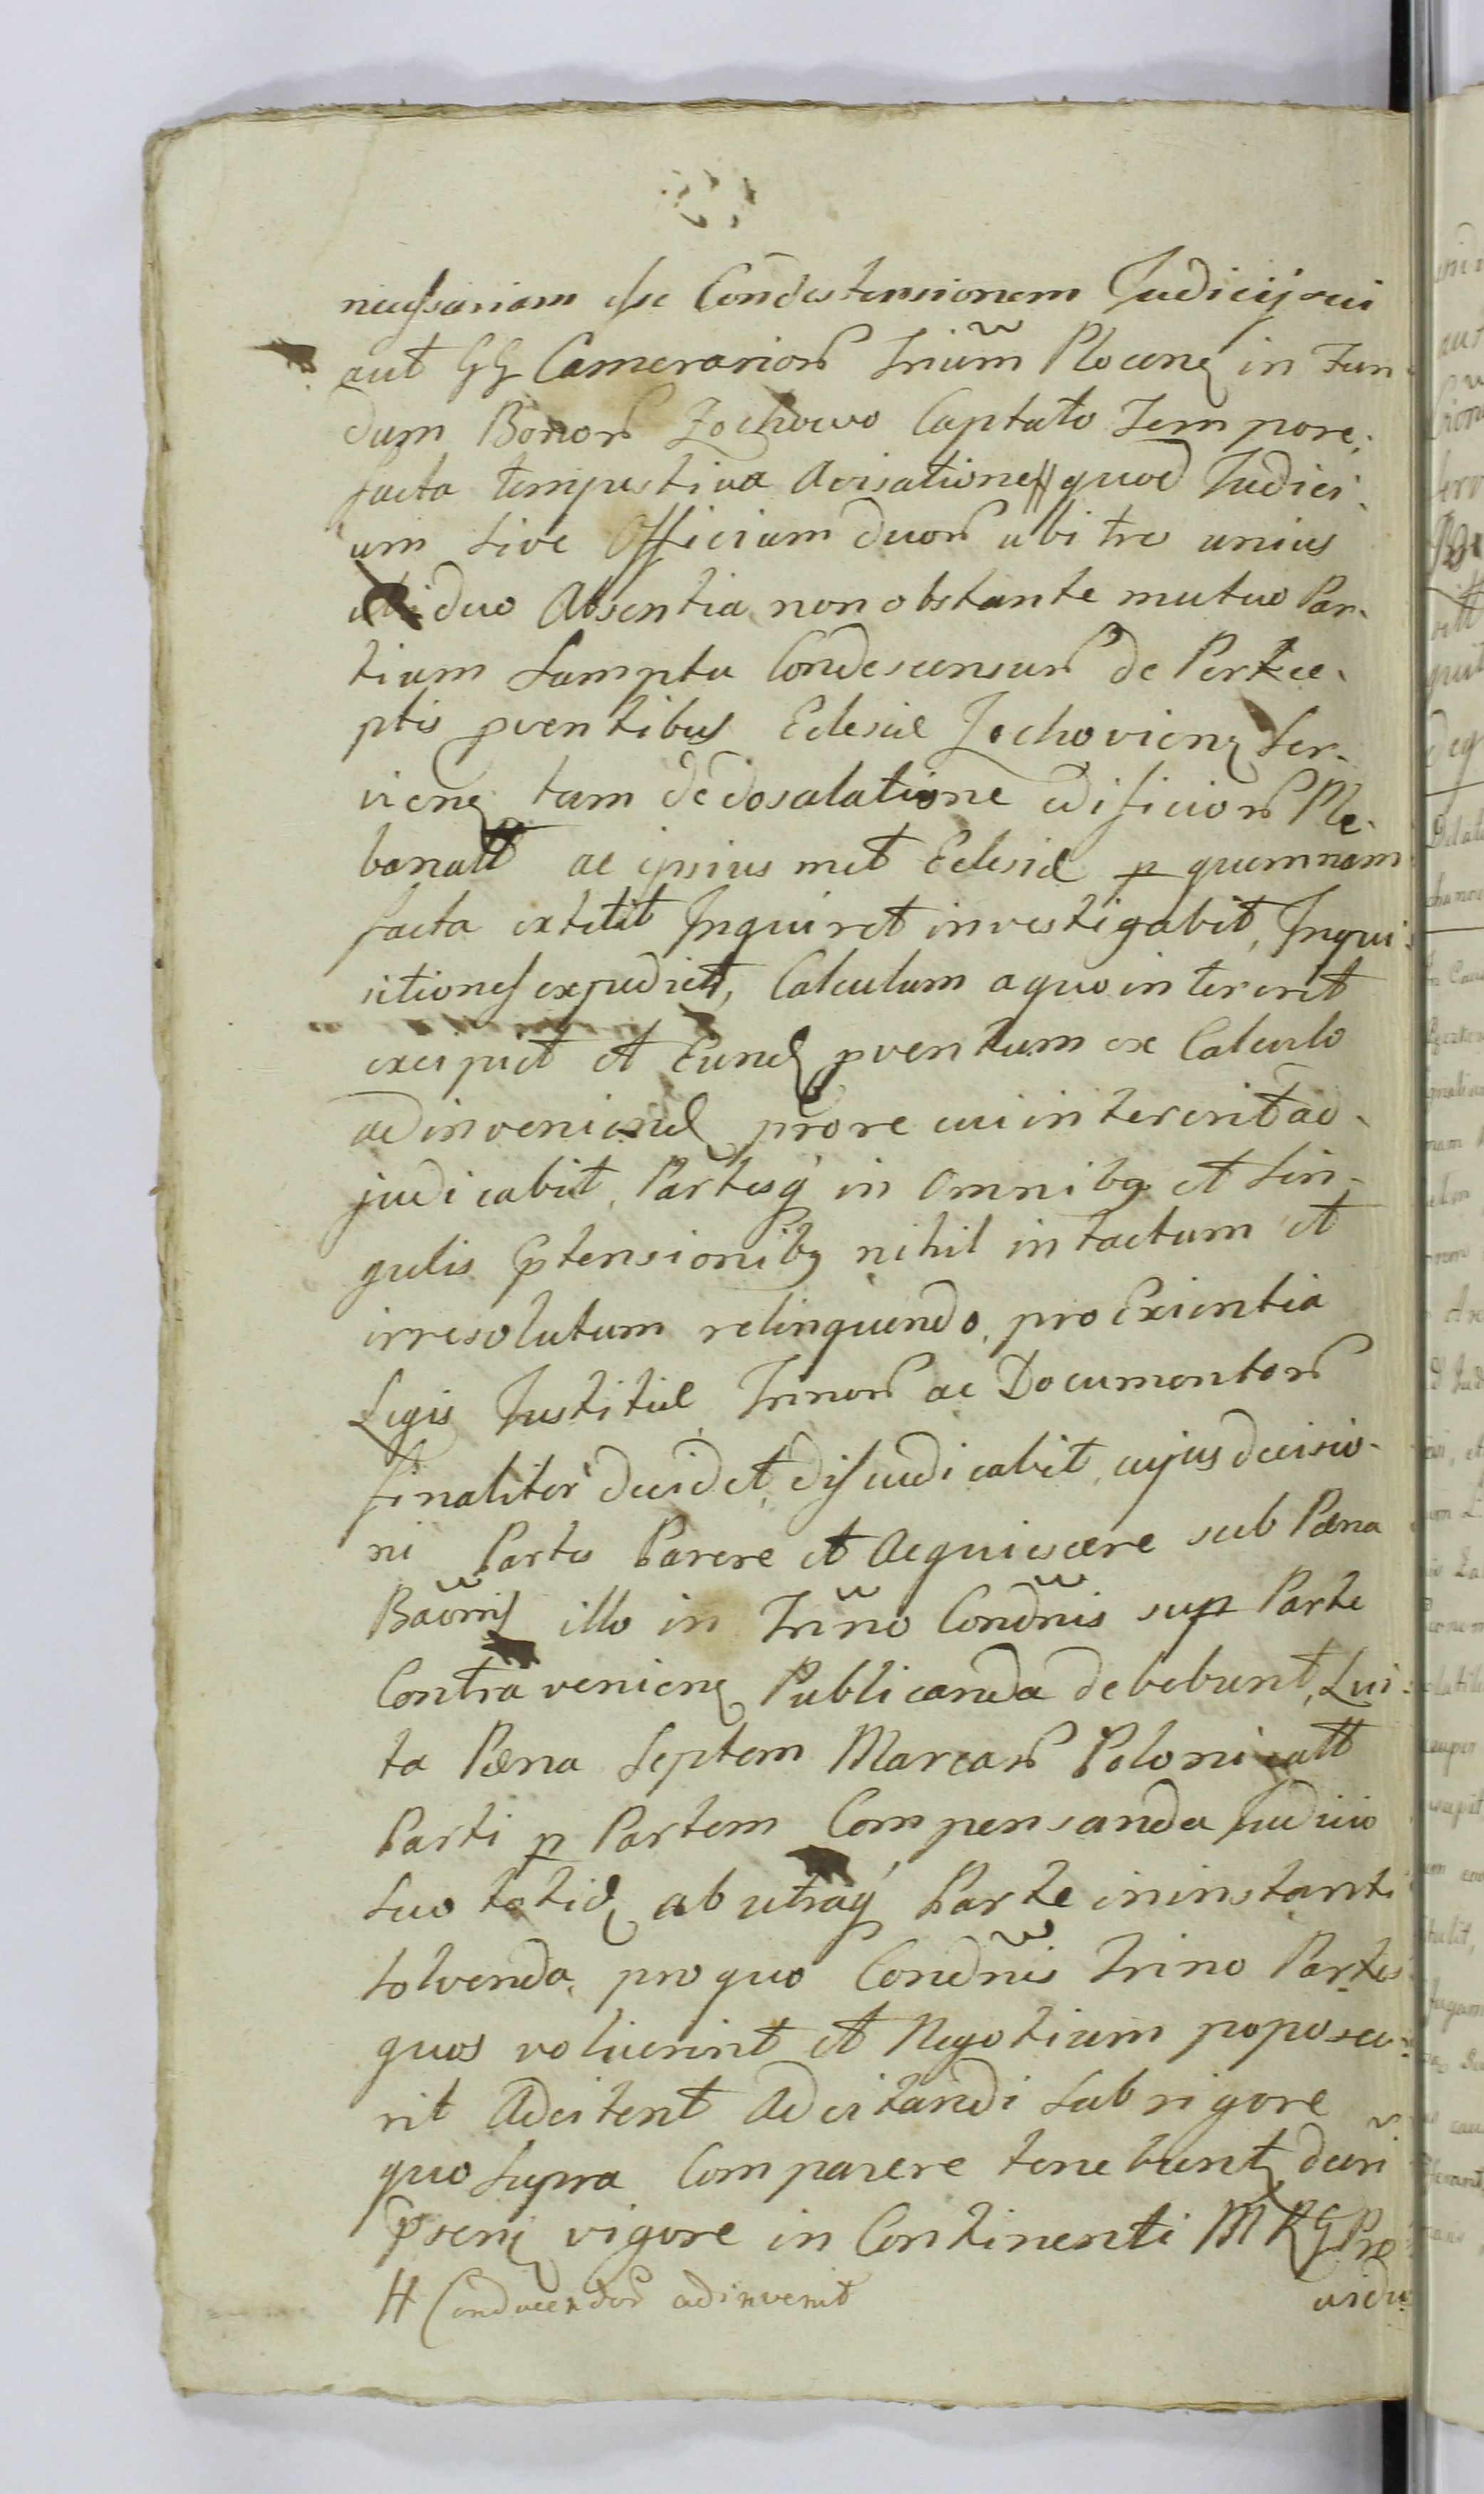 necessariam esse Condestensionem Judicij sui
aut GG Camerarior Trium Plocen in Fun-
dum Bonor Zochowo Captato Tempore,
facta tempestiva Avisatione # quod Judici-
um sive Officium duor ubi tres unius
ubi duo Absentia non obstante mutuo Par-
tium Sumptu Condescensur de Percee-
ptis pventibus Eclesiæ Zochovien Ser-
vien tam de dosalatione ædificior Ple-
banalt ac ipsius met Eclesiæ p quemnam
facta extitit Inquiret investigabit, Inqui-
sitiones expediet, Calculum a quo intererit
excipiet et Eund pventum ex Calculo
adinveniend prore cui intererit ad-
judicabit, Partesq in Omnibq et Sin-
gulis Ptensionibq nihil intactum et
irresolutum relinquendo, pro Exientia
Legis Justitiæ Trinor ac Documentor
finaliter decidet, disjudicabit, cujus decisio-
ni Partes Parere et Acquiescere sub Pæna
Baõnis illo in Trñno Condñis sup Parte
Contravenien Publicanda debebunt, Lui-
ta Pæna Septem Marcar Polonicalt
Parti p Partem Compensanda Judicio
Suo totid ab utraq Parte in instanti
Solvenda, pro quo Condñis Trino Partes
quos voluerint et Negotium poposce-
rit Adcitent Adcitandi sub rigore
quo Supra Comparere tenebunt decñi
Psen vigore in Continenti M RG Præ
# Conducendor adinvenit